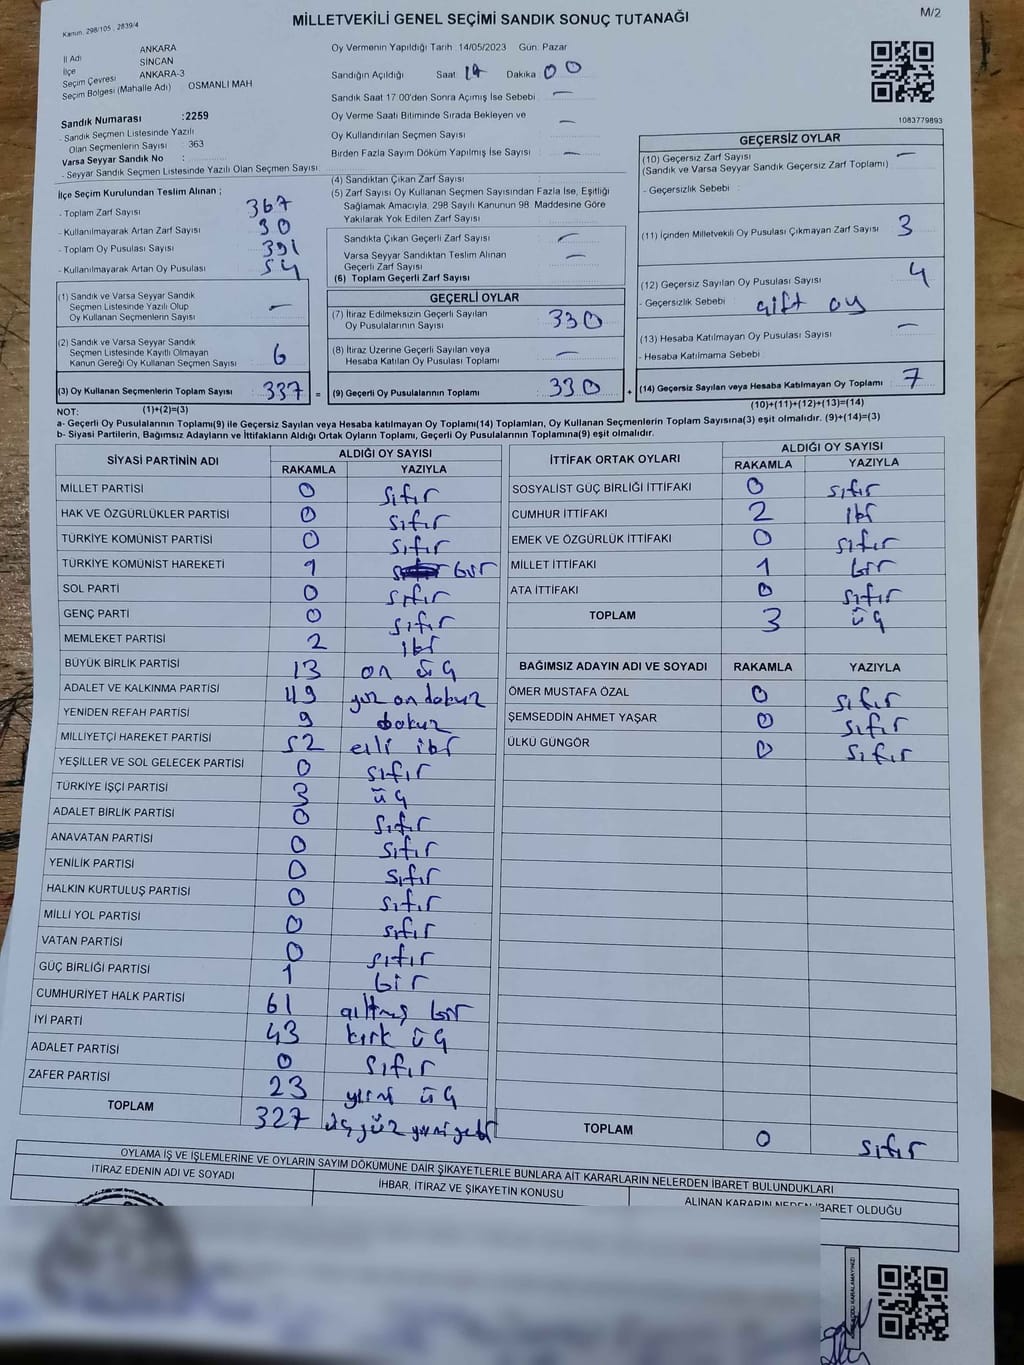 Kanun. 298/105 , 2839/4
MİLLETVEKİLİ GENEL SEÇİMİ SANDIK SONUÇ TUTANAĞI
M/2
İl Adı ANKARA
İlçe SİNCAN
Seçim Çevresi ANKARA-3
Seçim Bölgesi (Mahalle Adı) OSMANLI MAH
Oy Vermenin Yapıldığı Tarih 14/05/2023 Gün. Pazar
Sandığın Açıldığı Saat 17 Dakika 00
Sandık Saat 17 00'den Sonra Açımış İse Sebebi —
Oy Verme Saati Bitiminde Sırada Bekleyen ve
Oy Kullandırılan Seçmen Sayısı —
Birden Fazla Sayım Döküm Yapılmış İse Sayısı —
1083779893
Sandık Numarası :2259
- Sandık Seçmen Listesinde Yazılı
Olan Seçmenlerin Sayısı : 363
Varsa Seyyar Sandık No :
- Seyyar Sandık Seçmen Listesinde Yazılı Olan Seçmen Sayısı
İlçe Seçim Kurulundan Teslim Alınan ;
- Toplam Zarf Sayısı 367
- Kullanılmayarak Artan Zarf Sayısı 30
- Toplam Oy Pusulası Sayısı 391
- Kullanılmayarak Artan Oy Pusulası 54
(1) Sandık ve Varsa Seyyar Sandık
Seçmen Listesinde Yazılı Olup
Oy Kullanan Seçmenlerin Sayısı —
(2) Sandık ve Varsa Seyyar Sandık
Seçmen Listesinde Kayıtlı Olmayan
Kanun Gereği Oy Kullanan Seçmen Sayısı 6
(3) Oy Kullanan Seçmenlerin Toplam Sayısı 337 =
(4) Sandıktan Çıkan Zarf Sayısı
(5) Zarf Sayısı Oy Kullanan Seçmen Sayısından Fazla İse, Eşitliği
Sağlamak Amacıyla, 298 Sayılı Kanunun 98. Maddesine Göre
Yakılarak Yok Edilen Zarf Sayısı
Sandıkta Çıkan Geçerli Zarf Sayısı —
Varsa Seyyar Sandıktan Teslim Alınan
Geçerli Zarf Sayısı —
(6) Toplam Geçerli Zarf Sayısı
GEÇERLİ OYLAR
(7) İtiraz Edilmeksizin Geçerli Sayılan
Oy Pusulalarının Sayısı 330
(8) İtiraz Üzerine Geçerli Sayılan veya
Hesaba Katılan Oy Pusulası Toplamı —
(9) Geçerli Oy Pusulalarının Toplamı 330 +
GEÇERSİZ OYLAR
(10) Geçersiz Zarf Sayısı —
(Sandık ve Varsa Seyyar Sandık Geçersiz Zarf Toplamı)
- Geçersizlik Sebebi :
(11) İçinden Milletvekili Oy Pusulası Çıkmayan Zarf Sayısı 3
(12) Geçersiz Sayılan Oy Pusulası Sayısı 4
- Geçersizlik Sebebi çift oy
(13) Hesaba Katılmayan Oy Pusulası Sayısı —
- Hesaba Katılmama Sebebi
(14) Geçersiz Sayılan veya Hesaba Katılmayan Oy Toplamı 7
NOT: (1)+(2)=(3)
(10)+(11)+(12)+(13)=(14)
a- Geçerli Oy Pusulalarının Toplamı(9) ile Geçersiz Sayılan veya Hesaba katılmayan Oy Toplamı(14) Toplamları, Oy Kullanan Seçmenlerin Toplam Sayısına(3) eşit olmalıdır. (9)+(14)=(3)
b- Siyasi Partilerin, Bağımsız Adayların ve İttifakların Aldığı Ortak Oyların Toplamı, Geçerli Oy Pusulalarının Toplamına(9) eşit olmalıdır.
SİYASİ PARTİNİN ADI ALDIĞI OY SAYISI
RAKAMLA YAZIYLA
MİLLET PARTİSİ 0 sıfır
HAK VE ÖZGÜRLÜKLER PARTİSİ 0 sıfır
TÜRKİYE KOMÜNİST PARTİSİ 0 sıfır
TÜRKİYE KOMÜNİST HAREKETİ 1 bir
SOL PARTİ 0 sıfır
GENÇ PARTİ 0 sıfır
MEMLEKET PARTİSİ 2 iki
BÜYÜK BİRLİK PARTİSİ 13 on üç
ADALET VE KALKINMA PARTİSİ 119 yüz on dokuz
YENİDEN REFAH PARTİSİ 9 dokuz
MİLLİYETÇİ HAREKET PARTİSİ 52 elli iki
YEŞİLLER VE SOL GELECEK PARTİSİ 0 sıfır
TÜRKİYE İŞÇİ PARTİSİ 3 üç
ADALET BİRLİK PARTİSİ 0 sıfır
ANAVATAN PARTİSİ 0 sıfır
YENİLİK PARTİSİ 0 sıfır
HALKIN KURTULUŞ PARTİSİ 0 sıfır
MİLLİ YOL PARTİSİ 0 sıfır
VATAN PARTİSİ 0 sıfır
GÜÇ BİRLİĞİ PARTİSİ 1 bir
CUMHURİYET HALK PARTİSİ 61 altmış bir
İYİ PARTİ 43 kırk üç
ADALET PARTİSİ 0 sıfır
ZAFER PARTİSİ 23 yirmi üç
TOPLAM 327 üçyüz yirmi yedi
İTTİFAK ORTAK OYLARI ALDIĞI OY SAYISI
RAKAMLA YAZIYLA
SOSYALİST GÜÇ BİRLİĞİ İTTİFAKI 0 sıfır
CUMHUR İTTİFAKI 2 iki
EMEK VE ÖZGÜRLÜK İTTİFAKI 0 sıfır
MİLLET İTTİFAKI 1 bir
ATA İTTİFAKI 0 sıfır
TOPLAM 3 üç
BAĞIMSIZ ADAYIN ADI VE SOYADI RAKAMLA YAZIYLA
ÖMER MUSTAFA ÖZAL 0 sıfır
ŞEMSEDDİN AHMET YAŞAR 0 sıfır
ÜLKÜ GÜNGÖR 0 sıfır
TOPLAM 0 sıfır
OYLAMA İŞ VE İŞLEMLERİNE VE OYLARIN SAYIM DÖKÜMÜNE DAİR ŞİKAYETLERLE BUNLARA AİT KARARLARIN NELERDEN İBARET BULUNDUKLARI
İTİRAZ EDENİN ADI VE SOYADI İHBAR, İTİRAZ VE ŞİKAYETİN KONUSU ALINAN KARARIN NEDEN İBARET OLDUĞU